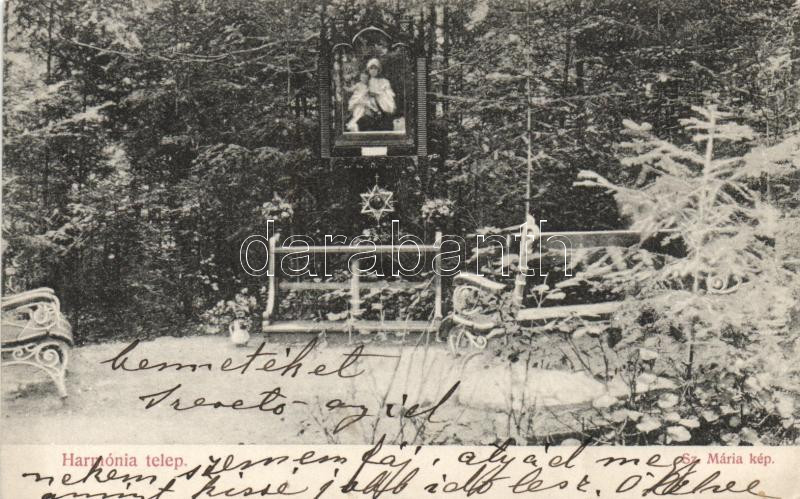 darabanth
bennetéket
Szerető-azid
Harmónia telep.
Sz. Mária kép.
nekem szemem fáj, atyád meg
annyit kissé jobb idő lesz.